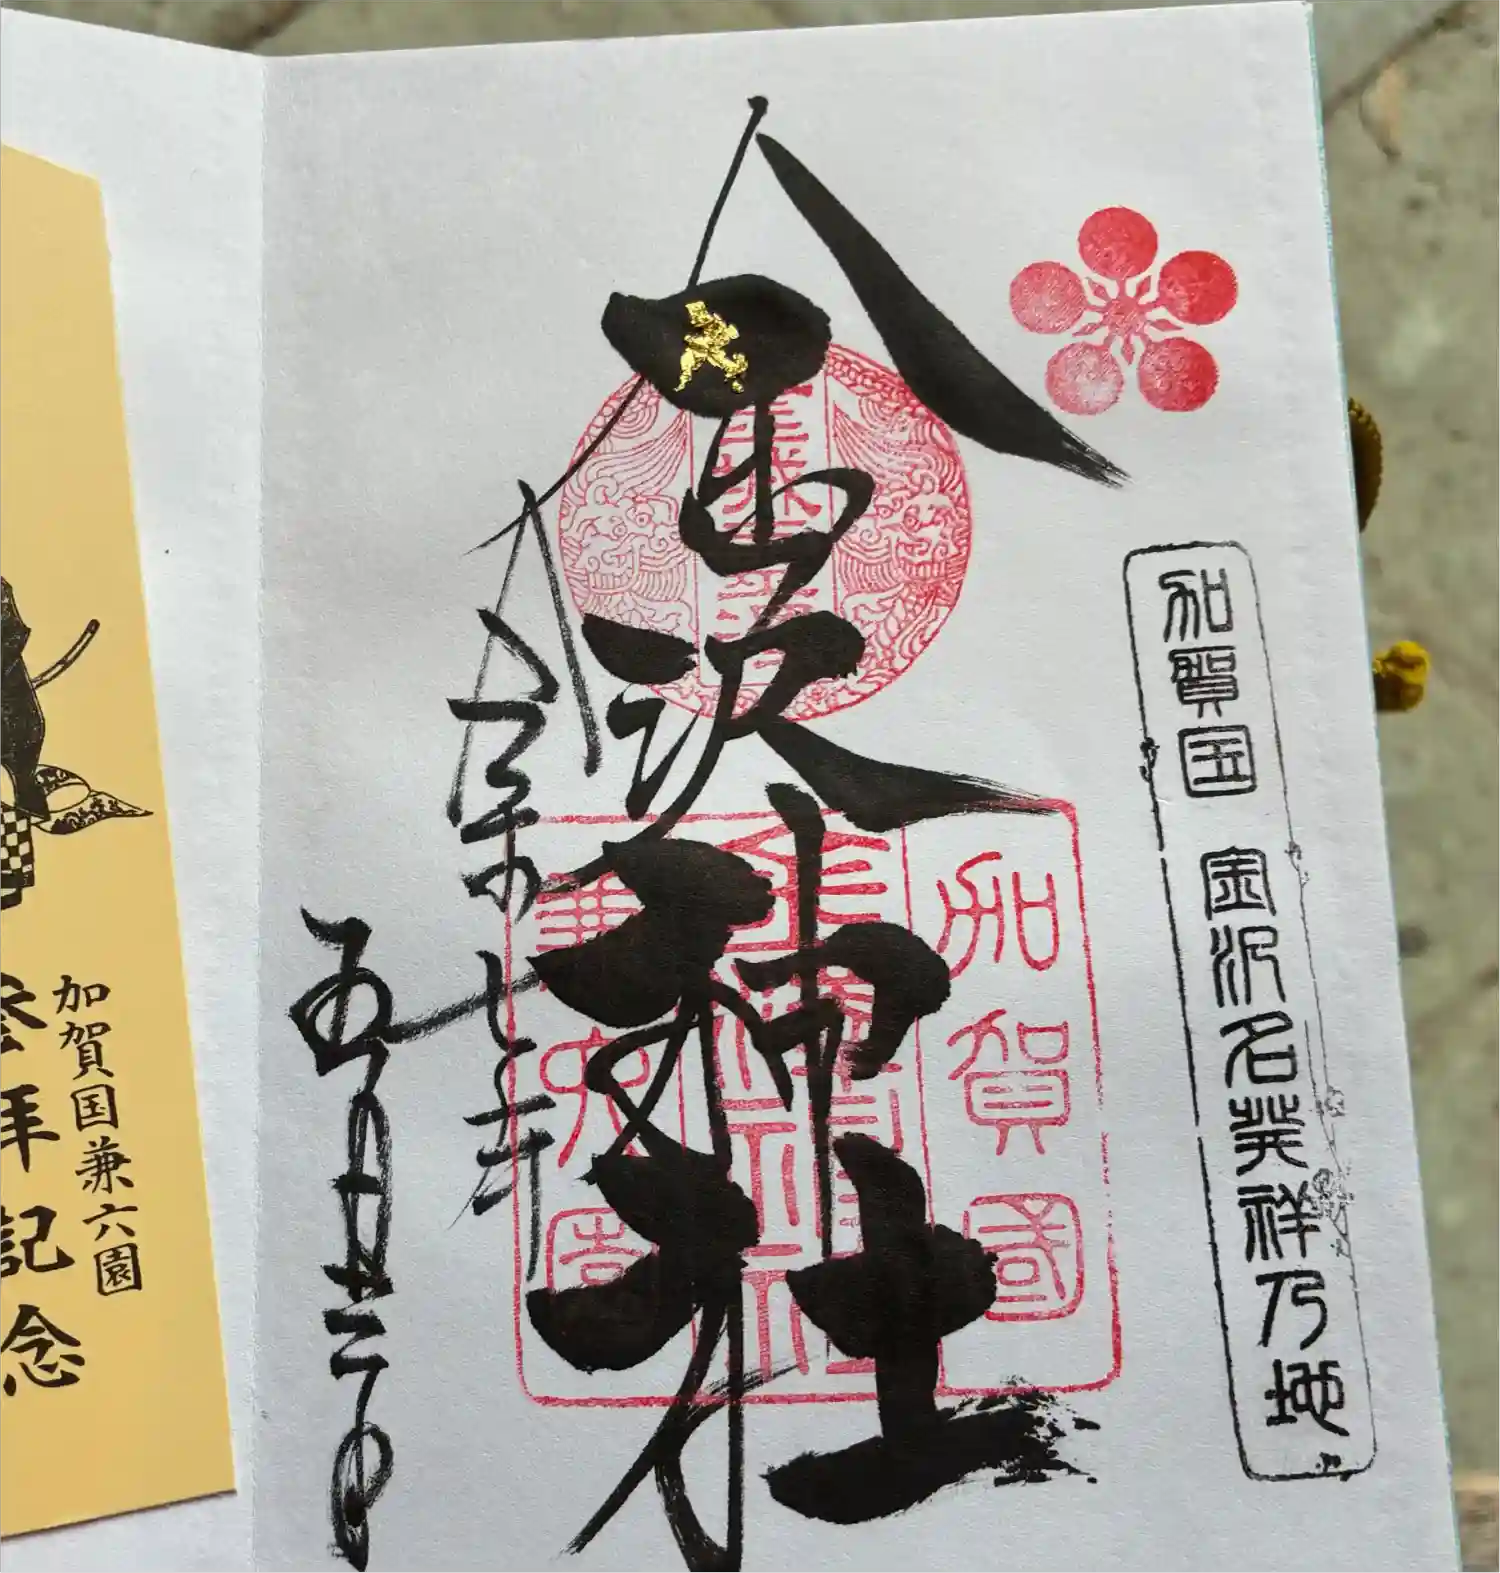 加賀国 金沢名発祥乃地
金沢神社
加賀國
金澤神社
兼六園
令和七年
五月
加賀国兼六園
参拝記念